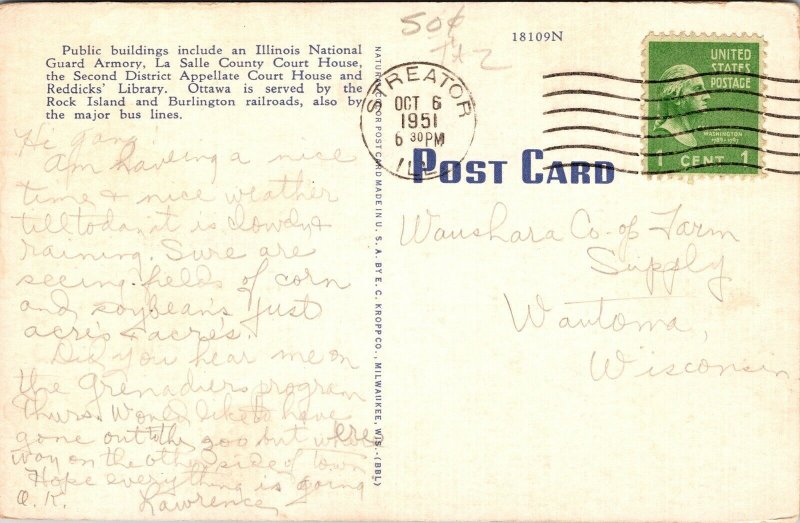 Public buildings include an Illinois National
Guard Armory, La Salle County Court House,
the Second District Appellate Court House and
Reddicks' Library. Ottawa is served by the
Rock Island and Burlington railroads, also by
the major bus lines.
Hi gang
Am having a nice
time & nice weather
till today it is clowdy &
raining. Sure are
seeing fields of corn
and soybean's just
acre's & acre's.
Did you hear me on
the Grenadiers program
Thurs. Would like to have
gone out to the zoo but were
way on the other side of town
Hope everything is going
O.K. Lawrence
NATURAL COLOR POST CARD MADE IN U. S. A. BY E. C. KROPP CO., MILWAUKEE, WIS.-(BBL)
50¢
18109N
STREATOR
OCT 6
1951
6 30 PM
ILL.
UNITED
STATES
POSTAGE
WASHINGTON
1789-1797
1 CENT 1
POST CARD
Waushara Co-op Farm
Supply
Wautoma,
Wisconsin